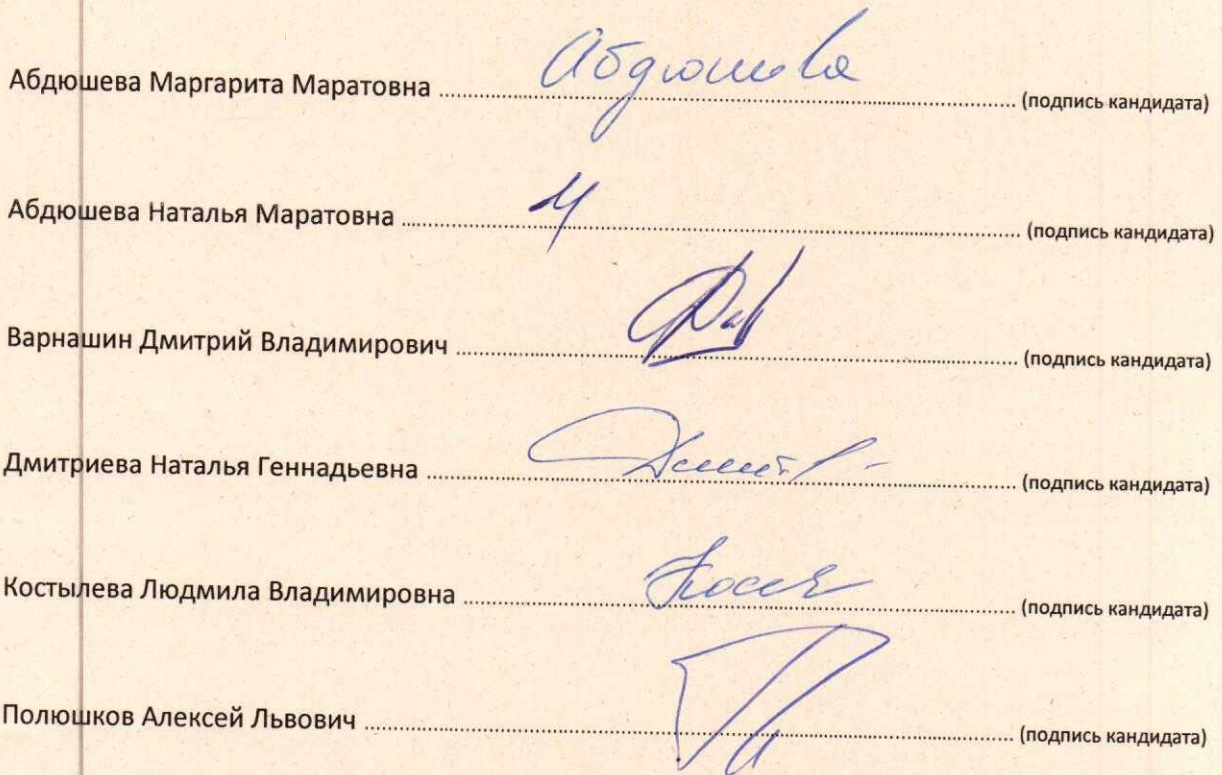 Абдюшева Маргарита Маратовна Абдюшева (подпись кандидата)
Абдюшева Наталья Маратовна (подпись кандидата)
Варнашин Дмитрий Владимирович (подпись кандидата)
Дмитриева Наталья Геннадьевна (подпись кандидата)
Костылева Людмила Владимировна (подпись кандидата)
Полюшков Алексей Львович (подпись кандидата)